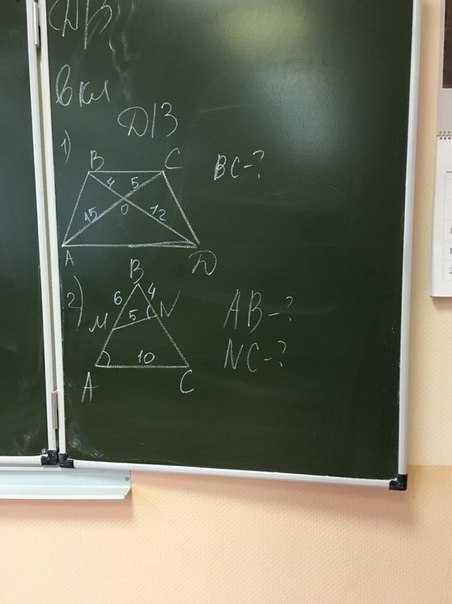 вкл
Д/З
1)
B C
4 5
O
15 12
A D
BC-?
2)
B
6 4
M 5 N
10
A C
AB-?
NC-?